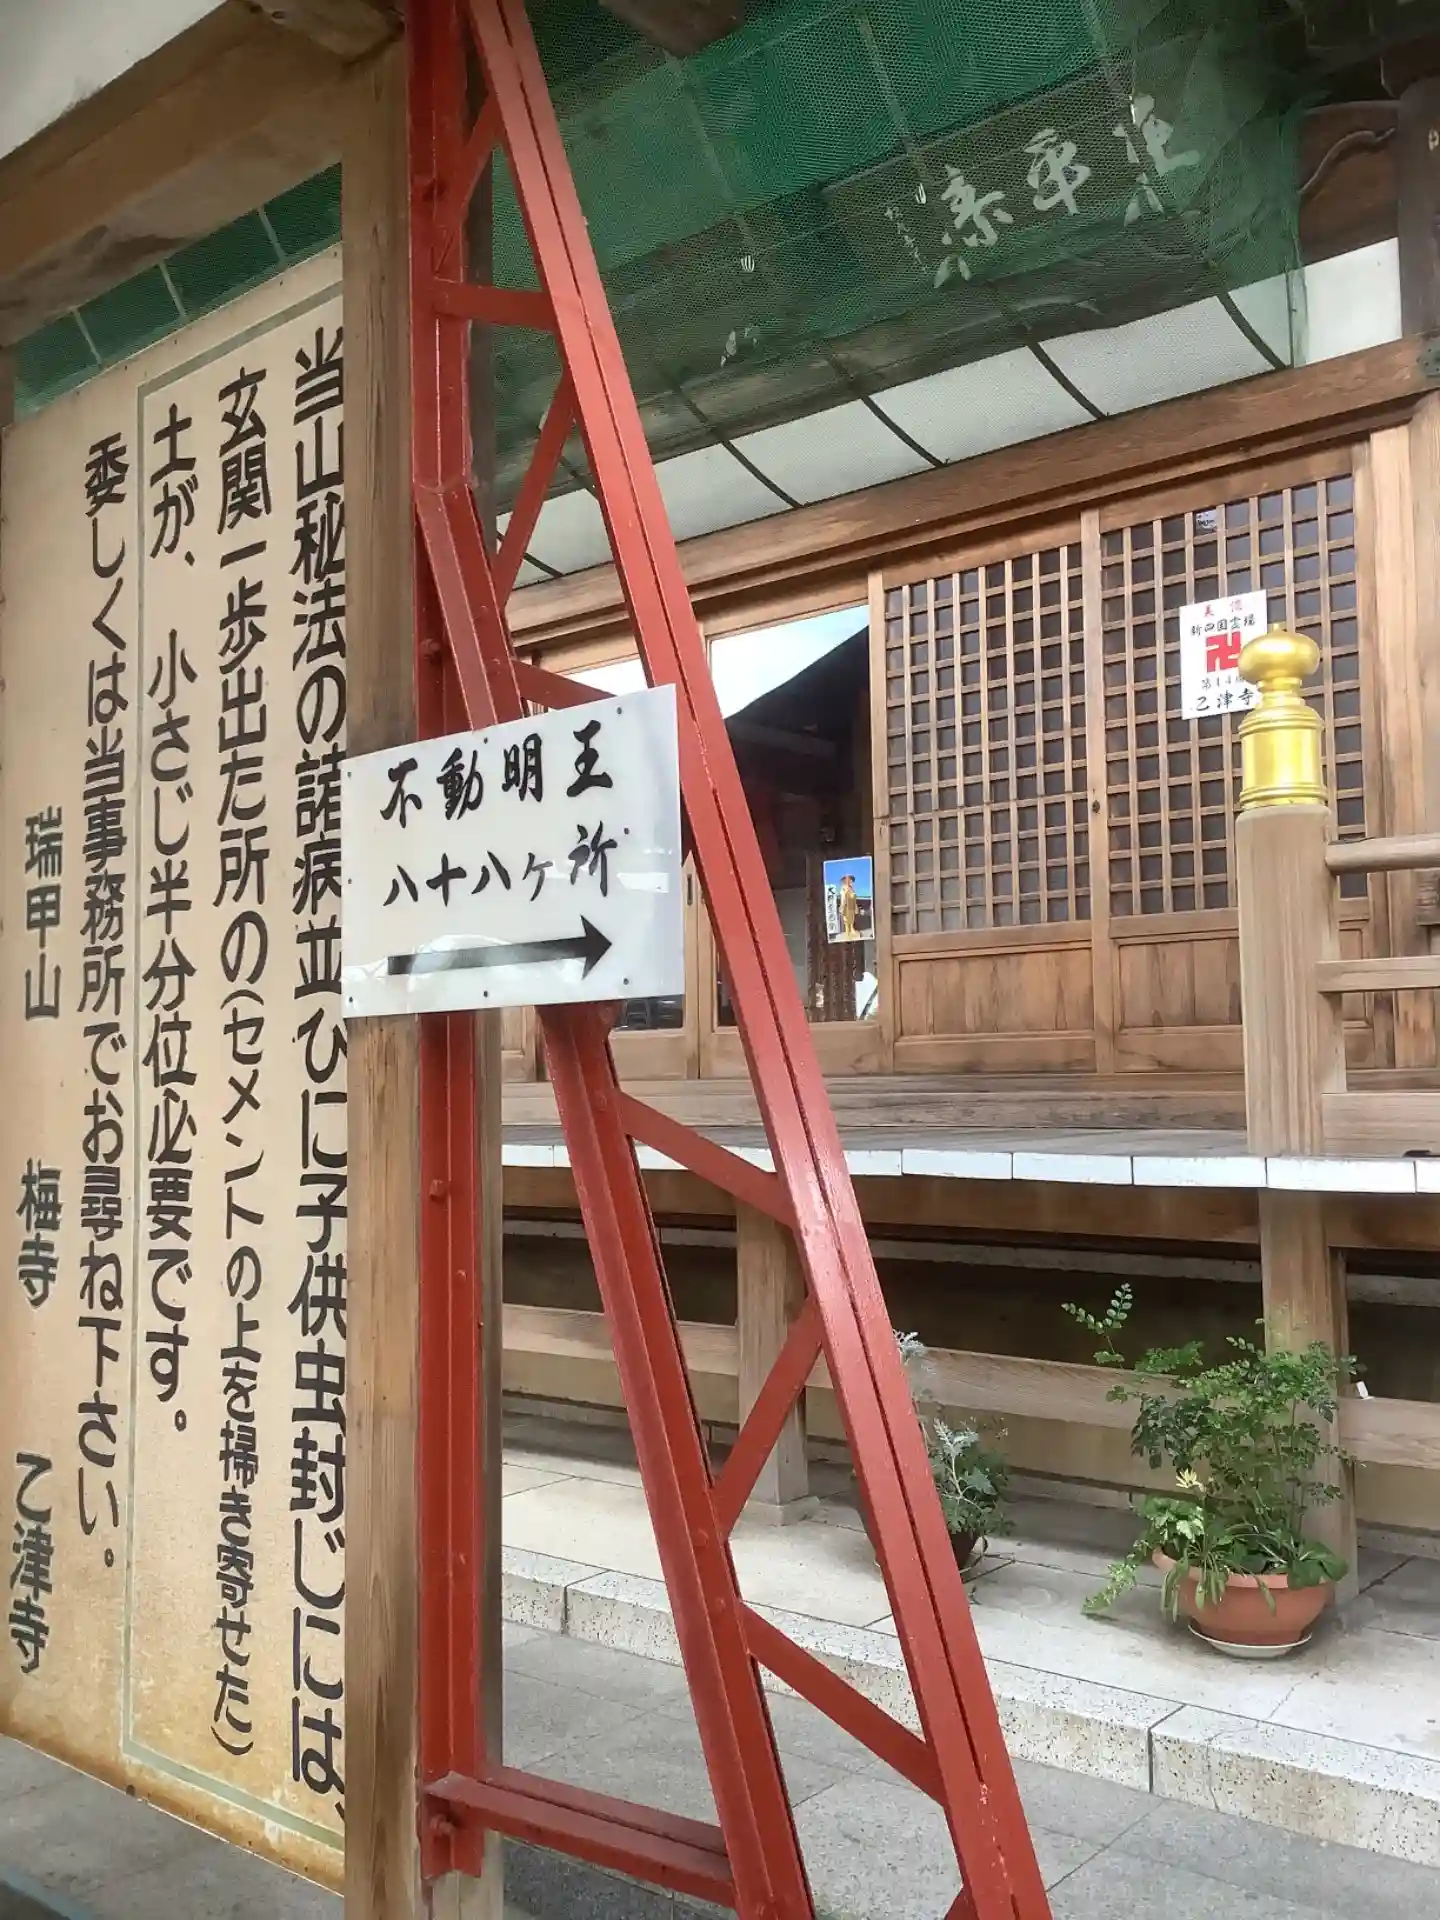 当山秘法の諸病並びに子供虫封じには、
玄関一歩出た所の(セメントの上を掃き寄せた)
土が、小さじ半分位必要です。
委しくは当事務所でお尋ね下さい。
瑞甲山 梅寺 乙津寺
不動明王
八十八ヶ所
美濃
新四国霊場
乙津寺